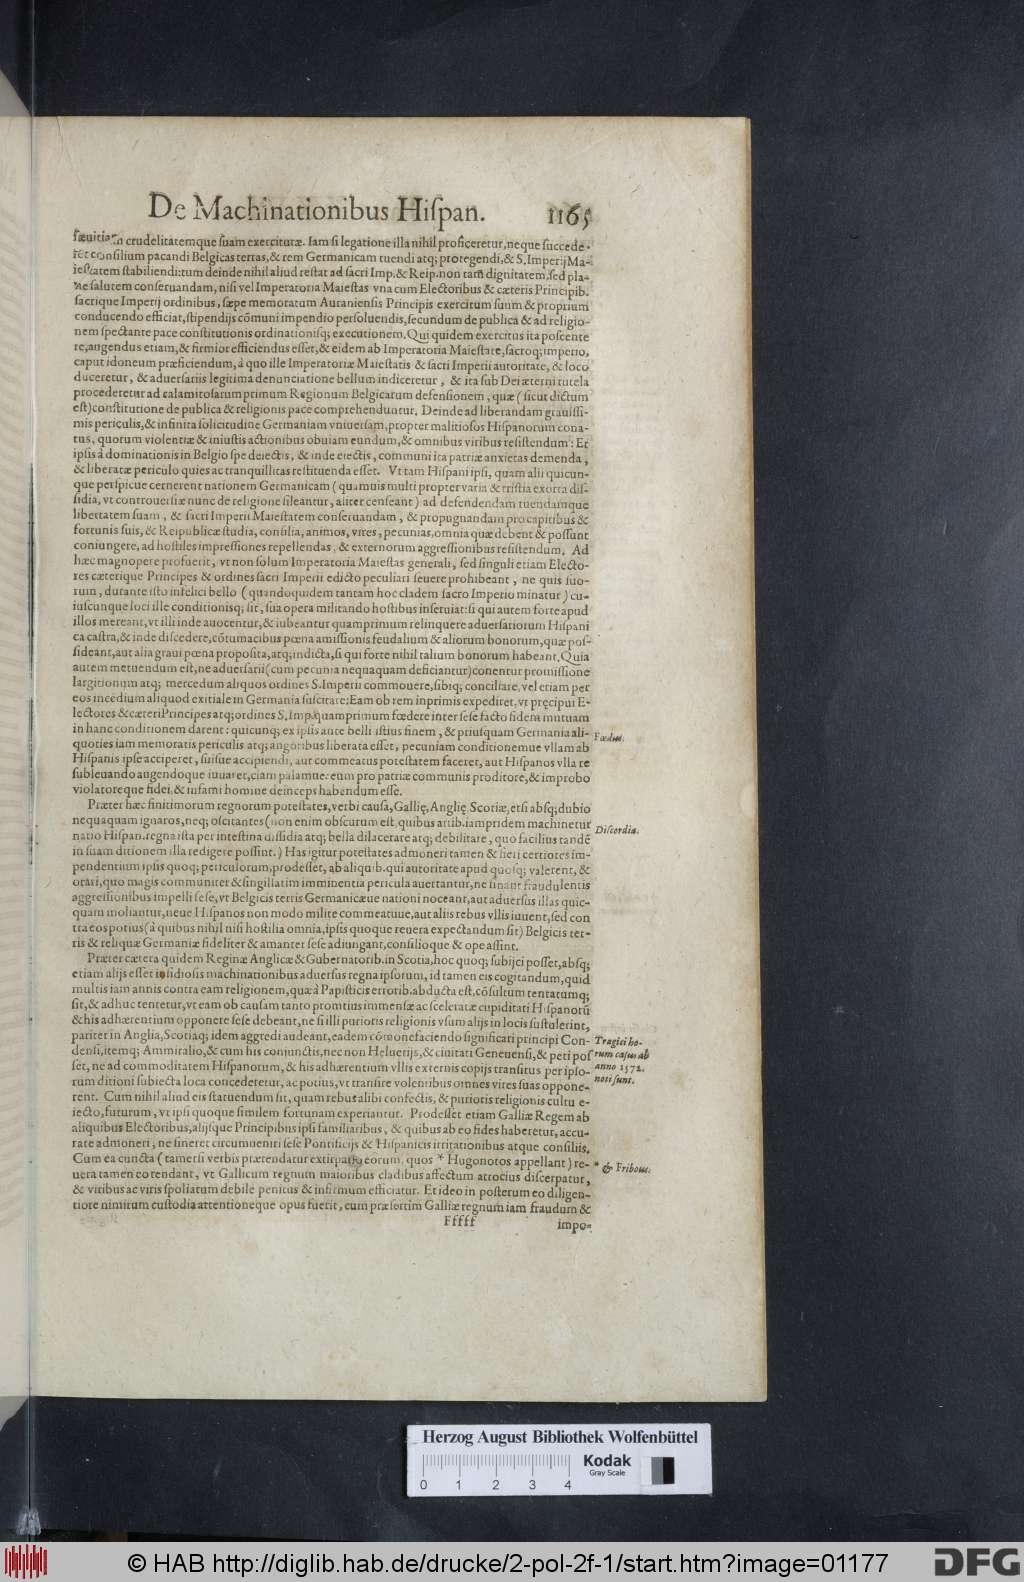 De Machinationibus Hiſpan. 1165
ſæuitiam crudelitatemque ſuam exercituræ. Iam ſi legatione illa nihil proficeretur, neque ſuccede-
ret conſilium pacandi Belgicas terras, & rem Germanicam tuendi atq; protegendi, & S. Imperij Ma-
ieſtatem ſtabiliendi: tum deinde nihil aliud reſtat ad ſacri Imp. & Reip. non tam dignitatem, ſed pla-
ne ſalutem conſeruandam, niſi vel Imperatoria Maieſtas vna cum Electoribus & cæteris Principib.
ſacrique Imperij ordinibus, ſæpe memoratum Auranienſis Principis exercitum ſuum & proprium
conducendo efficiat, ſtipendijs cõmuni impendio perſoluendis, ſecundum de publica & ad religio-
nem ſpectante pace conſtitutionis ordinationiſq; executionem. Qui quidem exercitus ita poſcente
re, augendus etiam, & firmior efficiendus eſſet, & eidem ab Imperatoria Maieſtate, ſacroq; imperio,
caput idoneum præficiendum, à quo ille Imperatoriæ Maieſtatis & ſacri Imperii autoritate, & loco
duceretur, & aduerſariis legitima denunciatione bellum indiceretur, & ita ſub Dei æterni tutela
procederetur ad calamitoſarum primum Regionum Belgicarum defenſionem, quæ (ſicut dictum
eſt) conſtitutione de publica & religionis pace comprehenduntur. Deinde ad liberandam grauiſſi-
mis periculis, & infinita ſolicitudine Germaniam vniuerſam, propter malitioſos Hiſpanorum cona-
tus, quorum violentiæ & iniuſtis actionibus obuiam eundum, & omnibus viribus reſiſtendum: Et
ipſis à dominationis in Belgio ſpe deiectis, & inde eiectis, communi ita patriæ anxietas demenda,
& liberatæ periculo quies ac tranquillitas reſtituenda eſſet. Vt tam Hiſpani ipſi, quam alii quicun-
que perſpicue cernerent nationem Germanicam (quamuis multi propter varia & triſtia exorta diſ-
ſidia, vt controuerſiæ nunc de religione ſileantur, aliter cenſeant) ad defendendam tuendamque
libertatem ſuam, & ſacri Imperii Maieſtatem conſeruandam, & propugnandam pro capitibus &
fortunis ſuis, & Reipublicæ ſtudia, conſilia, animos, vires, pecunias, omnia quæ debent & poſſunt
coniungere, ad hoſtiles impreſſiones repellendas, & externorum aggreſſionibus reſiſtendum. Ad
hæc magnopere profuerit, vt non ſolum Imperatoria Maieſtas generali, ſed ſinguli etiam Electo-
res cæterique Principes & ordines ſacri Imperii edicto peculiari ſeuere prohibeant, ne quis ſuo-
rum, durante iſto infelici bello (quandoquidem tantam hoc cladem ſacro Imperio minatur) cu-
iuſcunque loci ille conditionisq; ſit, ſua opera militando hoſtibus inſeruiat: ſi qui autem forte apud
illos mereant, vt illi inde auocentur, & iubeantur quamprimum relinquere aduerſariorum Hiſpani
ca caſtra, & inde diſcedere, cõtumacibus pœna amiſſionis feudalium & aliorum bonorum, quæ poſ-
ſideant, aut alia graui pœna propoſita, atq; indicta, ſi qui forte nihil talium bonorum habeant. Quia
autem metuendum eſt, ne aduerſarii (cum pecunia nequaquam deficiantur) conentur promiſſione
largitionum atq; mercedum aliquos ordines S. Imperii commouere, ſibiq; conciliare, vel etiam per
eos incedium aliquod exitiale in Germania ſuſcitare: Eam ob rem inprimis expediret, vt pręcipui E-
lectores & cæteri Principes atq; ordines S. Imp. quamprimum fœdere inter ſeſe facto fidem mutuam
in hanc conditionem darent: quicunq; ex ipſis ante belli iſtius finem, & priuſquam Germania ali-
quoties iam memoratis periculis atq; angoribus liberata eſſet, pecuniam conditionemue vllam ab
Hiſpanis ipſe acciperet, ſuiſue accipiendi, aut commeatus poteſtatem faceret, aut Hiſpanos vlla re
ſubleuando augendoque iuuaret, clam palamue: eum pro patriæ communis proditore, & improbo
violatoreque fidei, & infami homine deinceps habendum eſſe.
Fœdus.
Præter hæc finitimorum regnorum poteſtates, verbi cauſa, Gallię, Anglię, Scotiæ, etſi abſq; dubio
nequaquam ignaros, neq; oſcitantes (non enim obſcurum eſt, quibus artib. iampridem machinetur
natio Hiſpan. regna iſta per inteſtina diſſidia atq; bella dilacerare atq; debilitare, quo facilius tandẽ
in ſuam ditionem illa redigere poſſint.) Has igitur poteſtates admoneri tamen & fieri certiores im-
pendentium ipſis quoq; periculorum, prodeſſet, ab aliquib. qui autoritate apud quoſq; valerent, &
orari, quo magis communiter & ſingillatim imminentia pericula auertantur, ne ſinant fraudulentis
aggreſſionibus impelli ſeſe, vt Belgicis terris Germanicæue nationi noceant, aut aduerſus illas quic-
quam moliantur, neue Hiſpanos non modo milite commeatuue, aut aliis rebus vllis iuuent, ſed con
tra eos potius (à quibus nihil niſi hoſtilia omnia, ipſis quoque reuera expectandum ſit) Belgicis ter-
ris & reliquæ Germaniæ fideliter & amanter ſeſe adiungant, conſilioque & ope aſſint.
Diſcordia.
Præter cætera quidem Reginæ Anglicæ & Gubernatorib. in Scotia, hoc quoq; ſubijci poſſet, abſq;
etiam alijs eſſet inſidioſis machinationibus aduerſus regna ipſorum, id tamen eis cogitandum, quid
multis iam annis contra eam religionem, quæ à Papiſticis errorib. abducta eſt, cõſultum tentatumq;
ſit, & adhuc tentetur, vt eam ob cauſam tanto promtius immenſæ ac ſceleratæ cupiditati Hiſpanorũ
& his adhærentium opponere ſeſe debeant, ne ſi illi purioris religionis vſum alijs in locis ſuſtulerint,
pariter in Anglia, Scotiaq; idem aggredi audeant, eadem cõmonefaciendo ſignificari principi Con-
denſi, itemq; Ammiralio, & cum his coniunctis, nec non Heluetijs, & ciuitati Geneuenſi, & peti poſ
ſet, ne ad commoditatem Hiſpanorum, & his adhærentium vllis externis copijs tranſitus per ipſo-
rum ditioni ſubiecta loca concederetur, ac potius, vt tranſire volentibus omnes vires ſuas oppone-
rent. Cum nihil aliud eis ſtatuendum ſit, quam rebus alibi confectis, & purioris religionis cultu e-
iecto, futurum, vt ipſi quoque ſimilem fortunam experiantur. Prodeſſet etiam Galliæ Regem ab
aliquibus Electoribus, alijſque Principibus ipſi familiaribus, & quibus ab eo fides haberetur, accu-
rate admoneri, ne ſineret circumueniri ſeſe Pontificijs & Hiſpanicis irritationibus atque conſiliis.
Cum ea cuncta (tametſi verbis prætendatur extirpatio eorum, quos * Hugonotos appellant) re-
uera tamen eo tendant, vt Gallicum regnum maioribus cladibus affectum atrocius diſcerpatur,
& viribus ac viris ſpoliatum debile penitus & infirmum efficiatur. Et ideo in poſterum eo diligen-
tiore nimirum cuſtodia attentioneque opus fuerit, cum præſertim Galliæ regnum iam fraudum &
Tragici ho-
rum caſus ab
anno 1572.
noti ſunt.
* & Fribous.
Fffff impo-
Herzog August Bibliothek Wolfenbüttel
Kodak
Gray Scale
0 1 2 3 4
© HAB http://diglib.hab.de/drucke/2-pol-2f-1/start.htm?image=01177
DFG